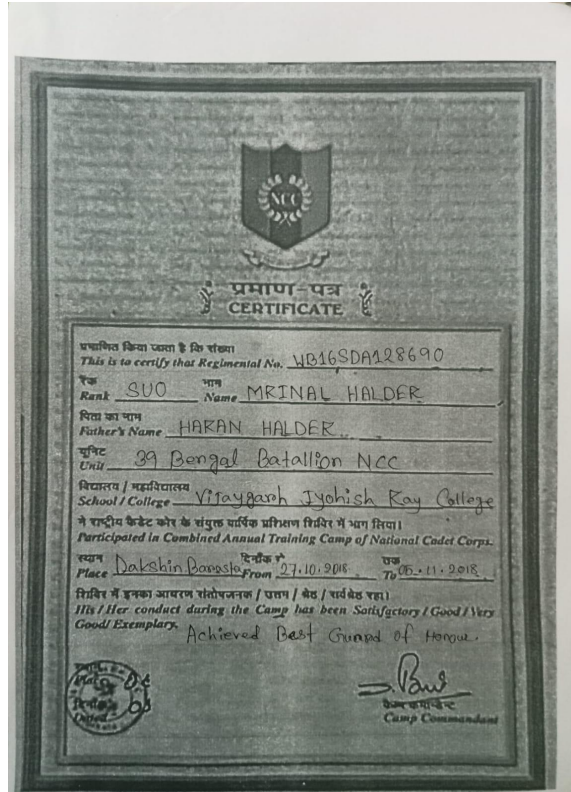 NCC
प्रमाण-पत्र
CERTIFICATE
प्रमाणित किया जाता है कि संख्या
This is to certify that Regimental No. WB16SDA128690
रैंक नाम
Rank SUO Name MRINAL HALDER
पिता का नाम
Father's Name HARAN HALDER
यूनिट
Unit 39 Bengal Batallion NCC
विद्यालय / महाविद्यालय
School / College Vijaygarh Jyohish Ray College
ने राष्ट्रीय कैडेट कोर के संयुक्त वार्षिक प्रशिक्षण शिविर में भाग लिया।
Participated in Combined Annual Training Camp of National Cadet Corps.
स्थान दिनाँक से तक
Place Dakshin Barasat From 27.10.2018 To 05.11.2018
शिविर में इनका आचरण संतोषजनक / उत्तम / श्रेष्ठ / सर्वश्रेष्ठ रहा।
His / Her conduct during the Camp has been Satisfactory / Good / Very
Good / Exemplary.
Achieved Best Guard of Honour.
स्थान
Place
दिनाँक
Dated
कैम्प कमान्डेन्ट
Camp Commandant